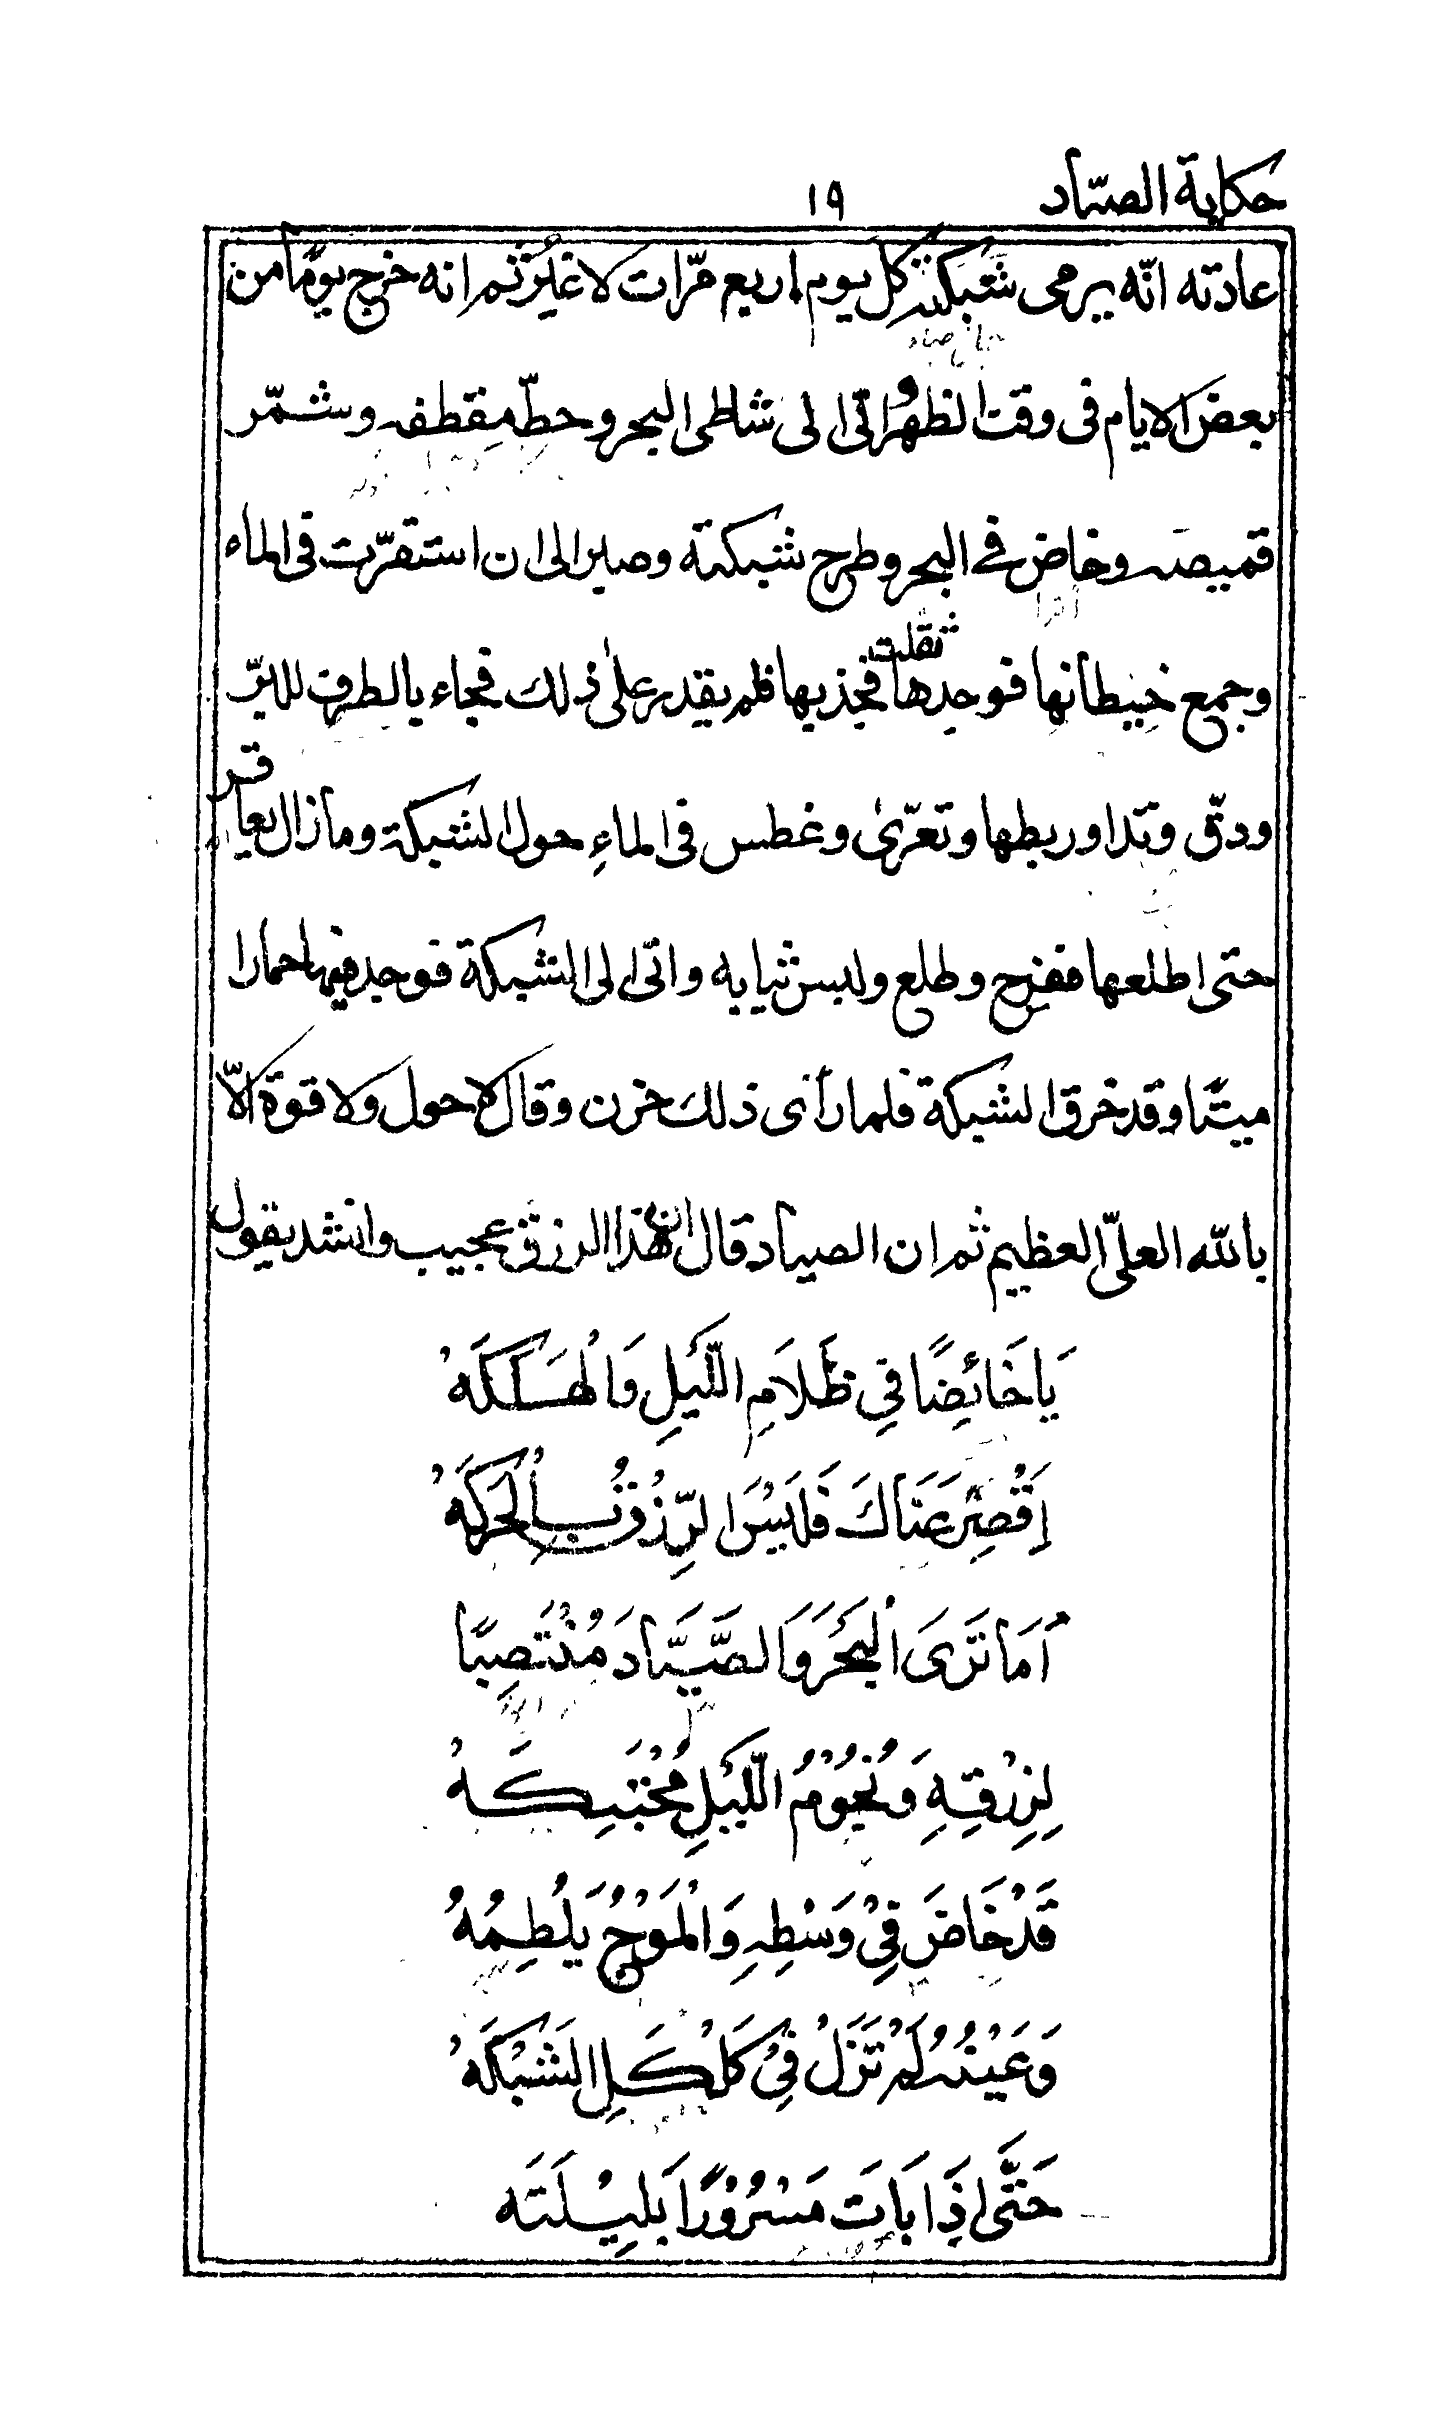 حكاية الصيّاد ١٩
عادته انّه يرمى شبكته كل يوم اربع مرّات لا غير ثم انه خرج يومًا من
بعض الايام فى وقت الظهر واتى الى شاطى البحر وحطّ مقطفه وشمّر
قميصه وخاض فى البحر وطرح شبكته وصبر الى ان استقرّت فى الماء
وجمع خيطانها فوجدها ثقلت فجذبها فلم يقدر على ذلك فجاء بالطرف للبرّ
ودقّ وتدا وربطها وتعرّى وغطس فى الماءِ حول الشبكة وما زال يعافر
حتى اطلعها ففرح وطلع ولبس ثيابه واتى الى الشبكة فوجد فيها حمارا
ميتًا وقد خرق الشبكة فلما رأى ذلك حزن وقال لا حول ولا قوة الّا
بالله العلىّ العظيم ثم ان الصياد قال ان هذا الرزق عجيب وانشد يقول
يَا خَائِضًا فِي ظَلَامِ اللَّيْلِ وَالْهَلَكَهْ
اِقْصِرْ عَنَاكَ فَلَيْسَ الرِّزْقُ بِالْحَرَكَهْ
اَمَا تَرَى الْبَحْرَ وَالصَّيَّادَ مُنْتَصِبًا
لِرِزْقِهِ وَنُجُوْمُ اللَّيْلِ مُحْتَبِكَهْ
قَدْ خَاضَ فِيْ وَسْطِهِ وَالْمَوْجُ يَلْطِمُهُ
وَعَيْنُهُ لَمْ تَزَلْ فِيْ كَلْكَلِ الشَبْكَهْ
حَتَّى اِذَا بَاتَ مَسْرُوْرًا بَلِيْلَتَه